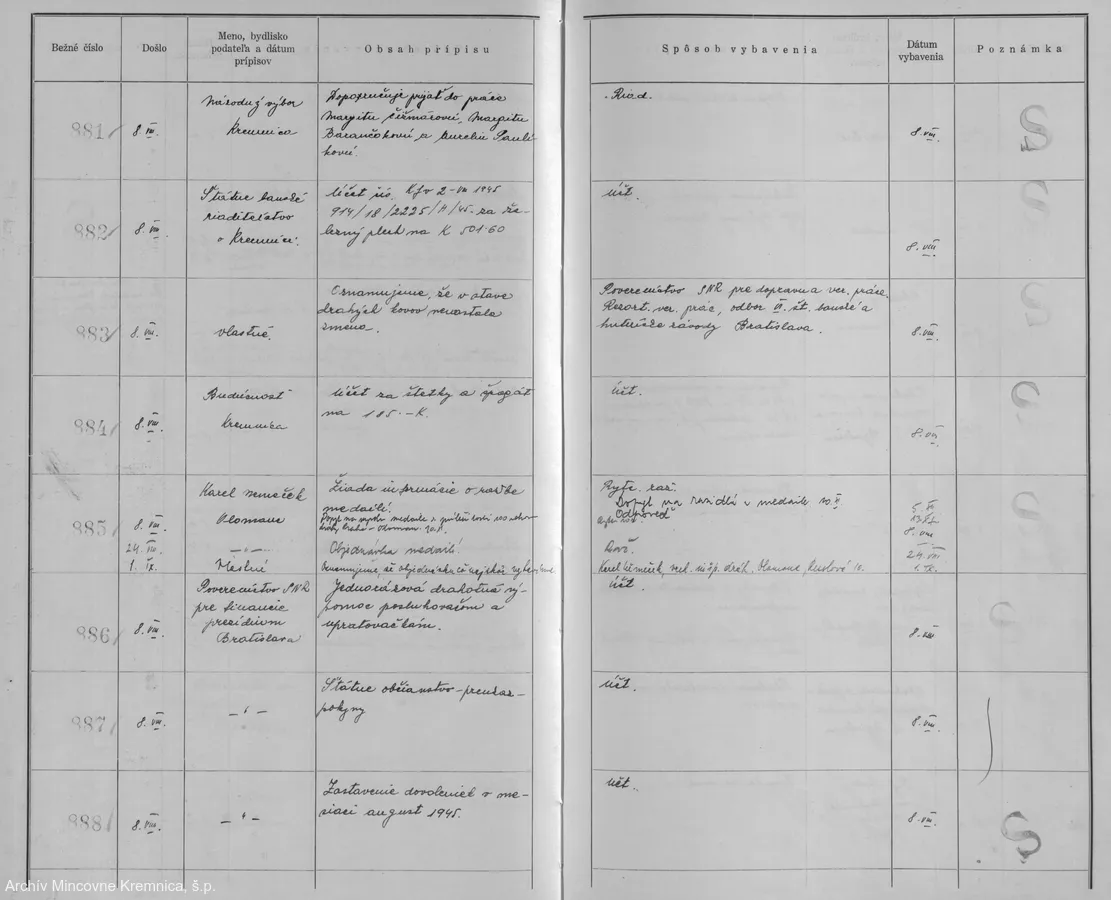 Bežné číslo
Došlo
Meno, bydlisko
podateľa a dátum
prípisov
Obsah prípisu
Spôsob vybavenia
Dátum
vybavenia
Poznámka
881
8. VIII.
Národný výbor
Kremnica
Doporučuje prijať do práce
Margitu Čižmárovú, Margitu
Barančokovú, a Aureliu Pauli-
kovú.
Riad.
8. VIII.
882
8. VIII.
Štátne banské
riaditeľstvo
v Kremnici.
Účet čís. 2-VIII 1945
914/18/2225/II/45. za že-
lezný plech na K 501.60
účt.
8. VIII.
883
8. VIII.
vlastné.
Oznamujeme, že v stave
drahých kovov nenastala
zmena.
Povereníctvo SNR pre dopravu a ver. práce.
Rezort. ver. prác, odbor VI. št. banské a
hutnícke závody Bratislava.
8. VIII.
884
8. VIII.
Budúcnosť
Kremnica
Účet za štetky a špagát
na 185.-K.
účt.
8. VIII.
885
8. VIII.
Karel Nemeček
Olomouc
Žiada informácie o razbe
medailí.
Ryte. raz.
Dopyt na razidlá v medaile
Odpoveď
8. VIII.
24. VIII.
– " –
Objednávka medailí.
24. VIII.
1. IX.
Oznamujeme, že objednávka
Olomouc,
1. IX.
886
8. VIII.
Povereníctvo SNR
pre financie
prezídium
Bratislava
Jednorázová drahotná vý-
pomoc posluhovačom a
upratovačkám.
účt.
8. VIII.
887
8. VIII.
– " –
Štátne občianstvo – preukaz –
pokyny
účt.
8. VIII.
888
8. VIII.
– " –
Zastavenie dovoleniek v me-
siaci august 1945.
účt.
8. VIII.
Archív Mincovne Kremnica, š.p.